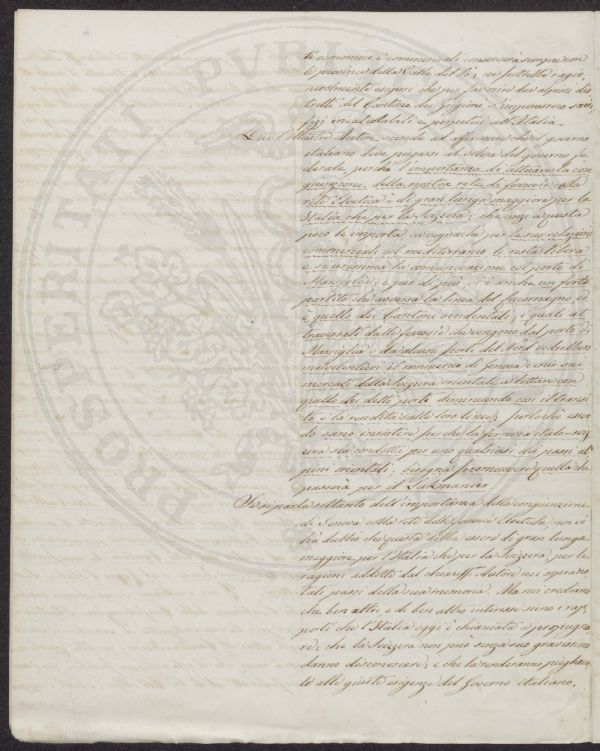 ti economici e commerciali conserverà sempre con
le provincie della Valle del Po; nè potrebbe ragio
nevolmente esigere che per favorire due alpini dis
tretti del Cantone dei Grigioni s'imponessero sacri
fizj incalcolabili e perpetui all'Italia.
Qui l'illustre Autore scende ad affermare che il governo
italiano deve piegarsi al volere del governo fe
derale, perchè l'importanza di attivare la con
giunzione della nostra rete di ferrovie colla
rete Elvetica è di gran lunga maggiore per la
Italia che per la Svizzera; che anzi a questa
poco le importa avvegnachè per le sue relazioni
commerciali col mediterraneo le resta libera
e sicurissima la comunicazione col porto di
Marsiglia; e per di più, vi è anche un forte
partito che avversa la linea del Lucomagno, ed
è quello dei Cantoni occidentali, i quali at
traversati dalle ferrovie che vengono dal porto di
Marsiglia e da alcuni porti del Nord vedrebbero
malvolentieri il commercio di Genova venir sui
mercati della Svizzera orientale a lottare con
quello dei detti porti diminuendo così il transi
to e la rendita sulle loro linee; perlochè essen
do vano insistere perchè la ferrovia italo-sviz
zera sia condotta per uno qualsiasi dei passi al
pini orientali, bisogna promuovere quella che
passerà per il Lukmanier.
Se si parla soltanto dell'importanza della congiunzione
di Genova colla rete delle ferrovie Elvetiche, non v'
ha dubbio che questa debba essere di gran lunga
maggiore per l'Italia che per la Svizzera per le
ragioni addotte dal chiariss. Autore nei sopraci
tati passi della sua memoria. Ma noi crediamo
che ben altri e di ben altro interesse sieno i rap
porti che l'Italia oggi è chiamata a propugna
re; che la Svizzera non può senza suo gravissimo
danno disconoscere; e che la renderanno pieghevo
le alle giuste esigenze del Governo italiano.
PROSPERITATI PUBL